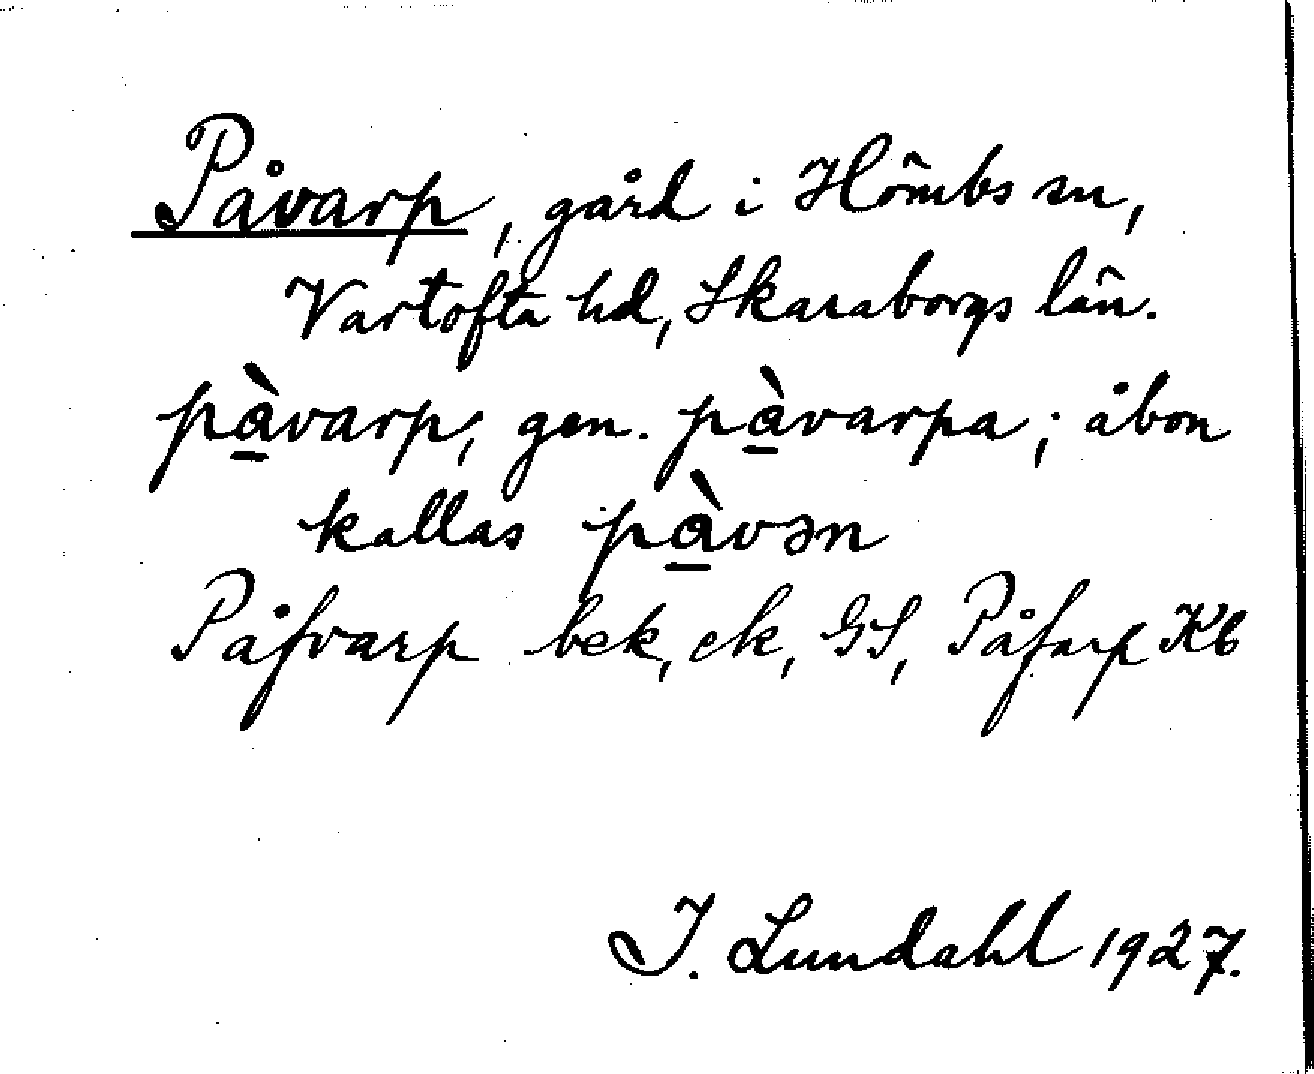 Påvarp, gård i Hömbs sn,
Vartofta hd, Skaraborgs län.
pà̲varp, gen. pà̲varpa; åbon
kallas pà̲vən
Påfvarp bek, ek, GS, Påfarp Kb
I. Lundahl 1927.